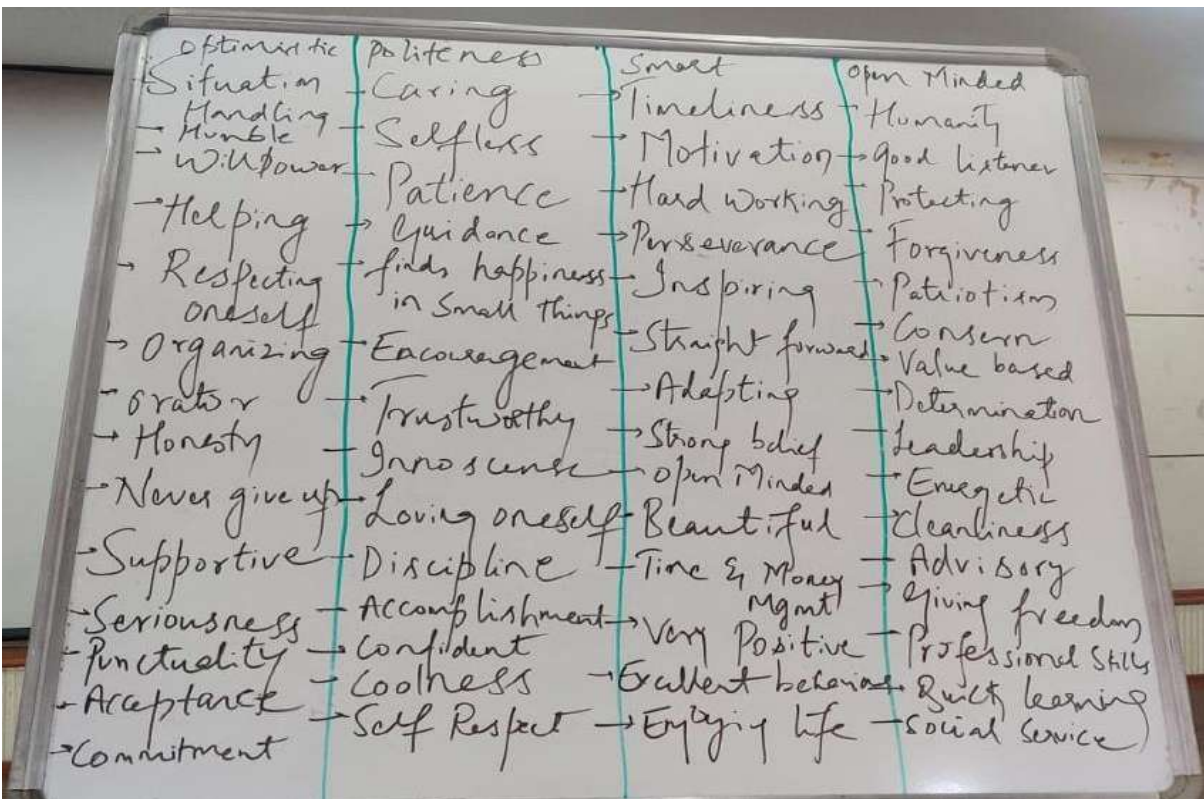 optimistic
Situation
Handling
→ Humble
→ Will power
→ Helping
→ Respecting
oneself
→ Organizing
→ orator
→ Honesty
→ Never give up
→ Supportive
→ Seriousness
→ Punctuality
→ Acceptance
→ Commitment
Politeness
→ Caring
→ Selfless
→ Patience
→ Guidance
→ finds happiness
in small things
→ Encouragement
→ Trustworthy
→ Innoscense
→ Loving oneself
→ Discipline
→ Accomplishment
→ Confident
→ Coolness
→ Self Respect
Smart
→ Timeliness
→ Motivation
→ Hard working
→ Perseverance
→ Inspiring
→ Straight forward
→ Adapting
→ Strong belief
→ open Minded
→ Beautiful
→ Time & Money
Mgmt
→ Very Positive
→ Excellent behaviour
→ Enjoying life
Open Minded
→ Humanity
→ good listener
→ Protecting
→ Forgiveness
→ Patriotism
→ Consern
→ Value based
→ Determination
→ Leadership
→ Energetic
→ Cleanliness
→ Advisory
→ giving freedom
→ Professional Skills
→ Quick learning
→ Social Service